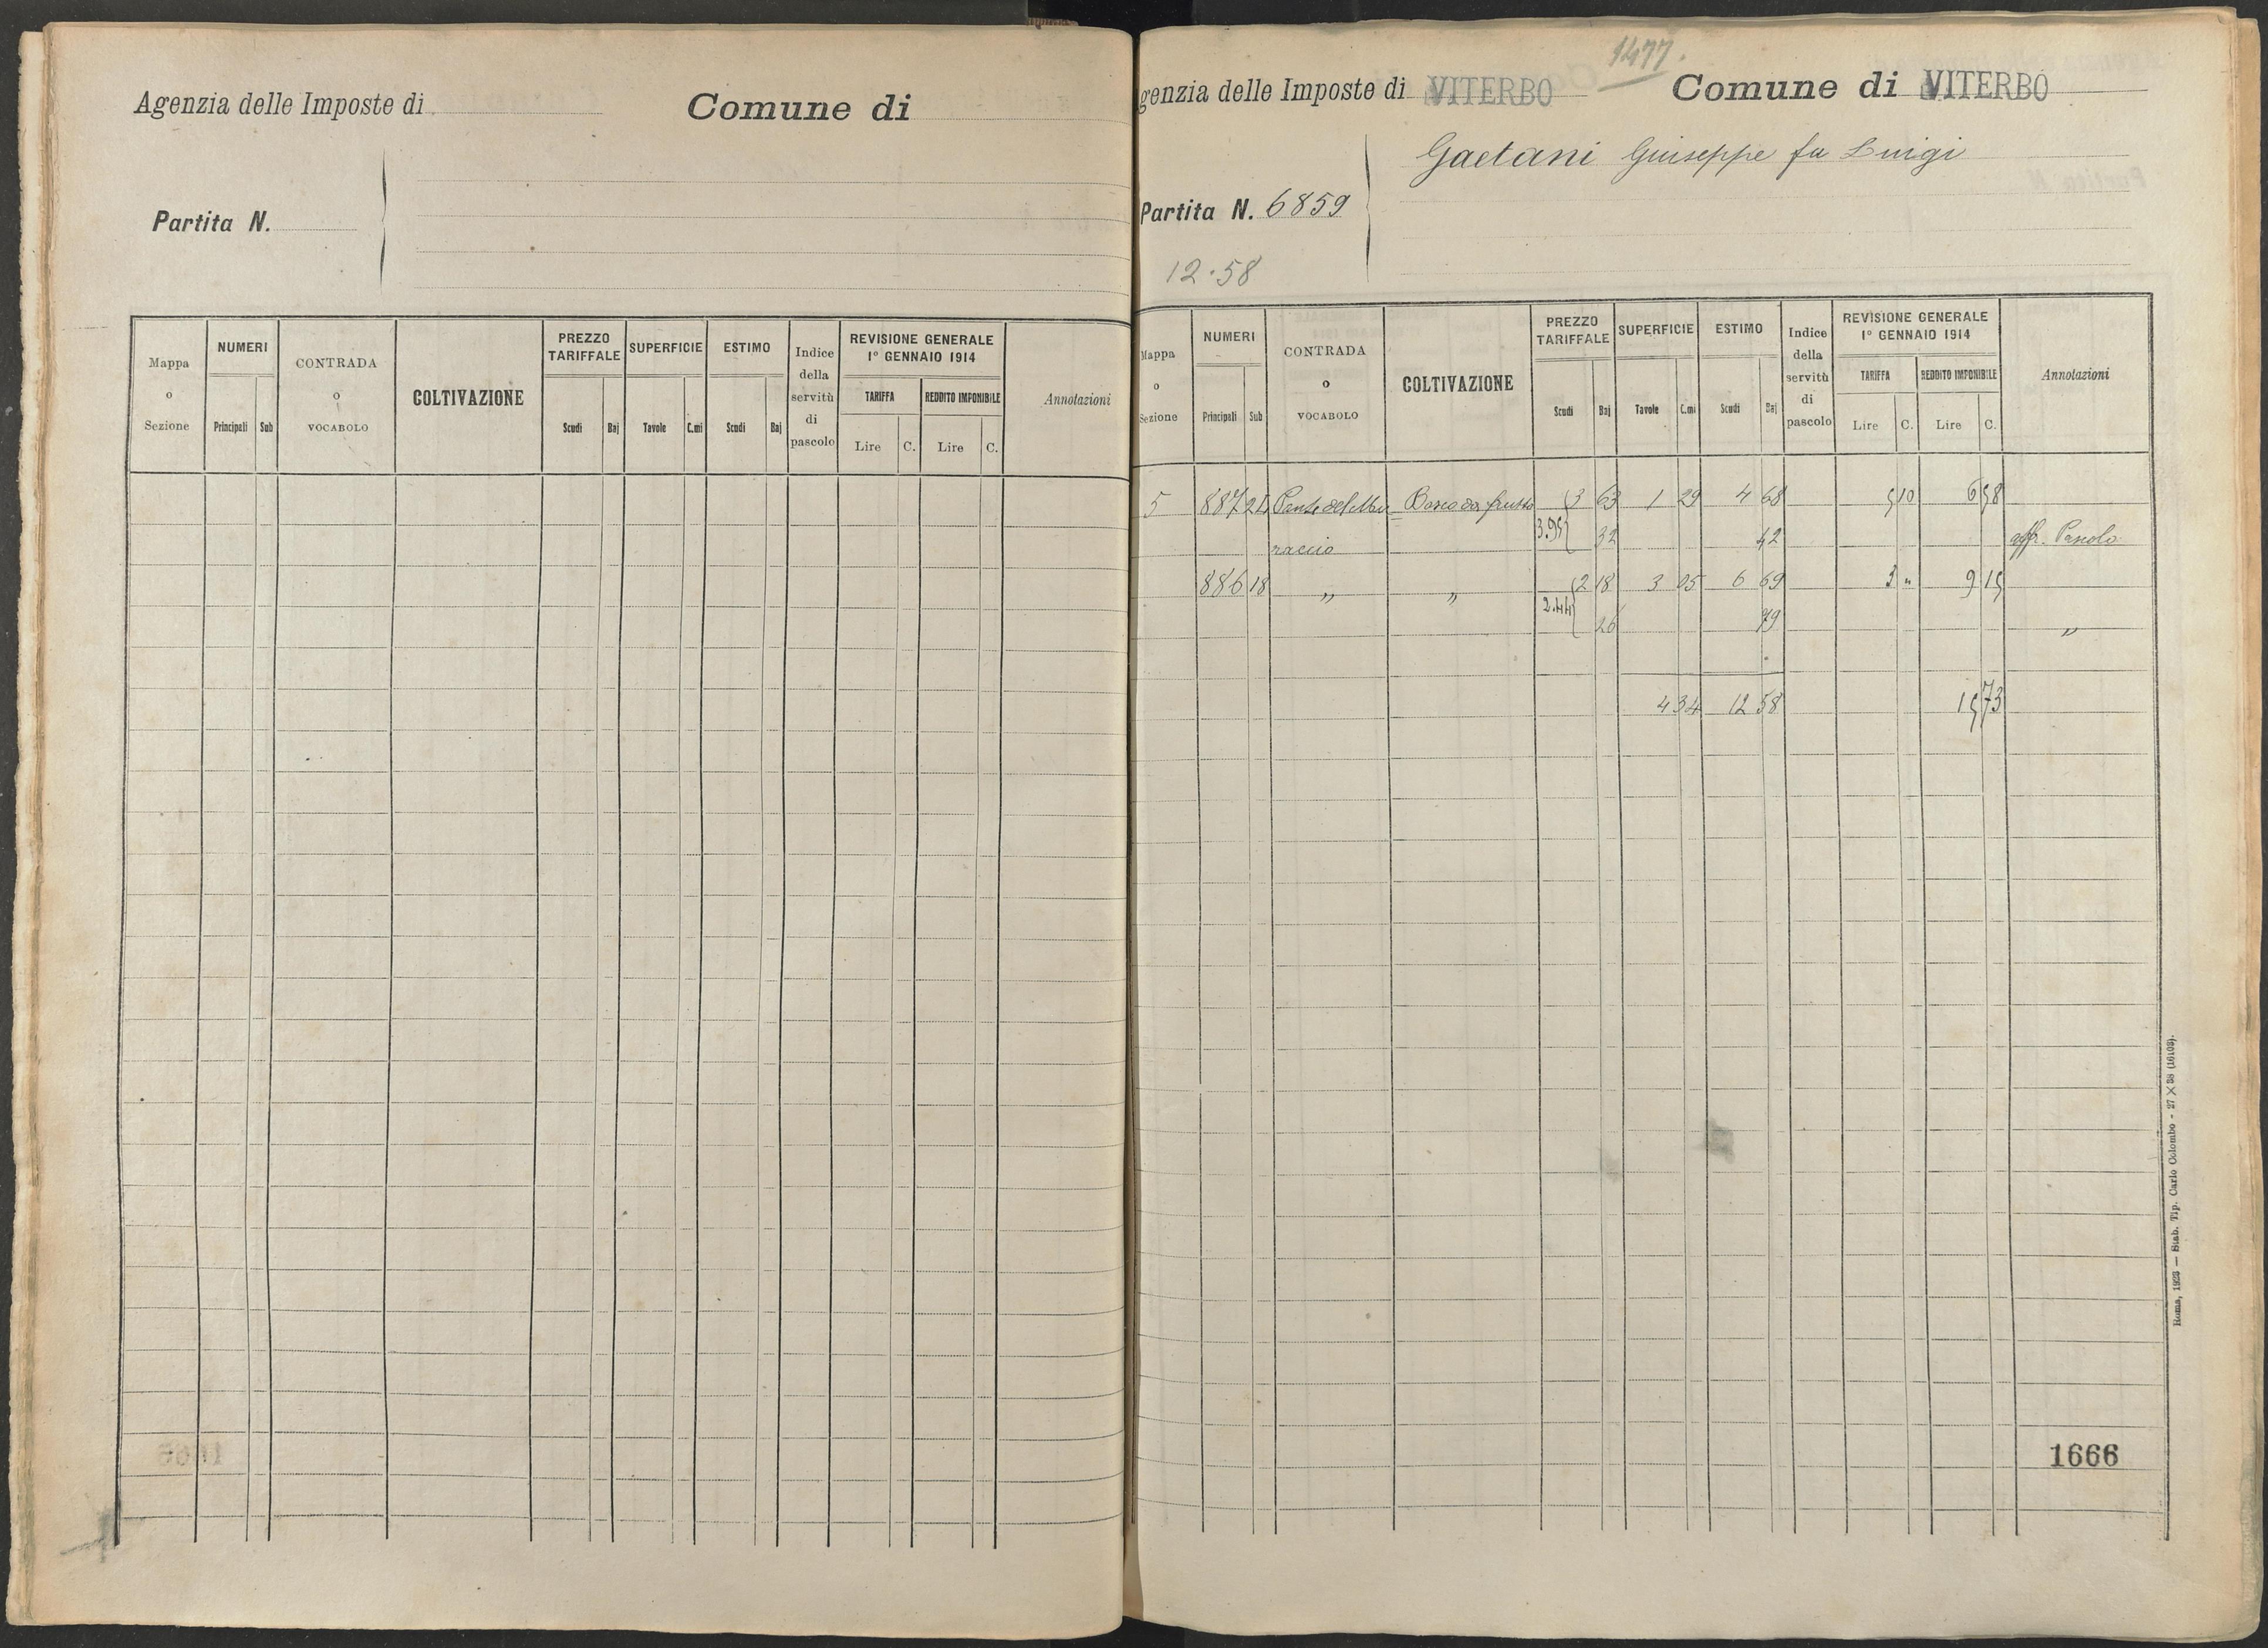 Agenzia delle Imposte di
Comune di
Partita N.
Mappa o Sezione
NUMERI
Principali
Sub
CONTRADA o VOCABOLO
COLTIVAZIONE
PREZZO TARIFFALE
Scudi
Baj
SUPERFICIE
Tavole
C.mi
ESTIMO
Scudi
Baj
Indice della servitù di pascolo
REVISIONE GENERALE
1° GENNAIO 1914
TARIFFA
REDDITO IMPONIBILE
Lire
C.
Lire
C.
Annotazioni
1477.
genzia delle Imposte di VITERBO
Comune di VITERBO
Gaetani Giuseppe fu Luigi
Partita N. 6859
12.58
Mappa o Sezione
NUMERI
Principali
Sub
CONTRADA o VOCABOLO
COLTIVAZIONE
PREZZO TARIFFALE
Scudi
Baj
SUPERFICIE
Tavole
C.mi
ESTIMO
Scudi
Baj
Indice della servitù di pascolo
REVISIONE GENERALE
1° GENNAIO 1914
TARIFFA
REDDITO IMPONIBILE
Lire
C.
Lire
C.
Annotazioni
5 887 da frutto 3 63 1 29 4 68 5 10 6 58
3.95 32 42
886 18 " " 2 18 3 05 6 69 3 " 9 15
2.44 26 79 "
4 34 12 58 15 73
Roma, 1923 — Stab. Tip. Carlo Colombo - 27 X 38 (16103).
1666